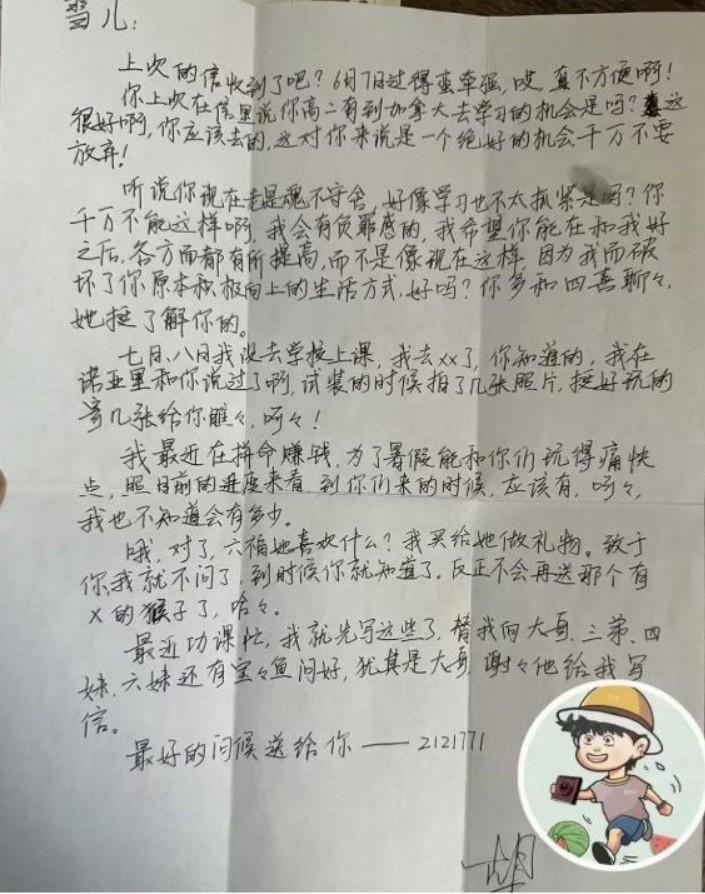 雪儿：
上次的信收到了吧？6月7日过得蛮牵强，哎，真不方便啊！
你上次在信里说你高二有到加拿大去学习的机会是吗？这
很好啊，你应该去的，这对你来说是一个绝好的机会，千万不要
放弃！
听说你现在老是魂不守舍，好像学习也不太抓紧是吗？你
千万不能这样啊，我会有负罪感的，我希望你能在和我好
之后，各方面都有所提高，而不是像现在这样，因为我而破
坏了你原本积极向上的生活方式，好吗？你多和四喜聊々，
她挺了解你的。
七日、八日我没去学校上课，我去xx了，你知道的，我在
诺亚里和你说过了啊，试装的时候拍了几张照片，挺好玩的
寄几张给你瞧々，呵々！
我最近在拼命赚钱，为了暑假能和你们玩得痛快
点，照目前的进度来看，到你们来的时候，应该有，呵々，
我也不知道会有多少。
哦，对了，六福她喜欢什么？我买给她做礼物。致于
你，我就不问了，到时候你就知道了。反正不会再送那个有
X的猴子了，哈々。
最近功课忙，我就先写这些了，替我向大哥、三弟、四
妹、六妹还有宝々鱼问好，犹其是大哥，谢々他给我写
信。
最好的问候送给你——2121771